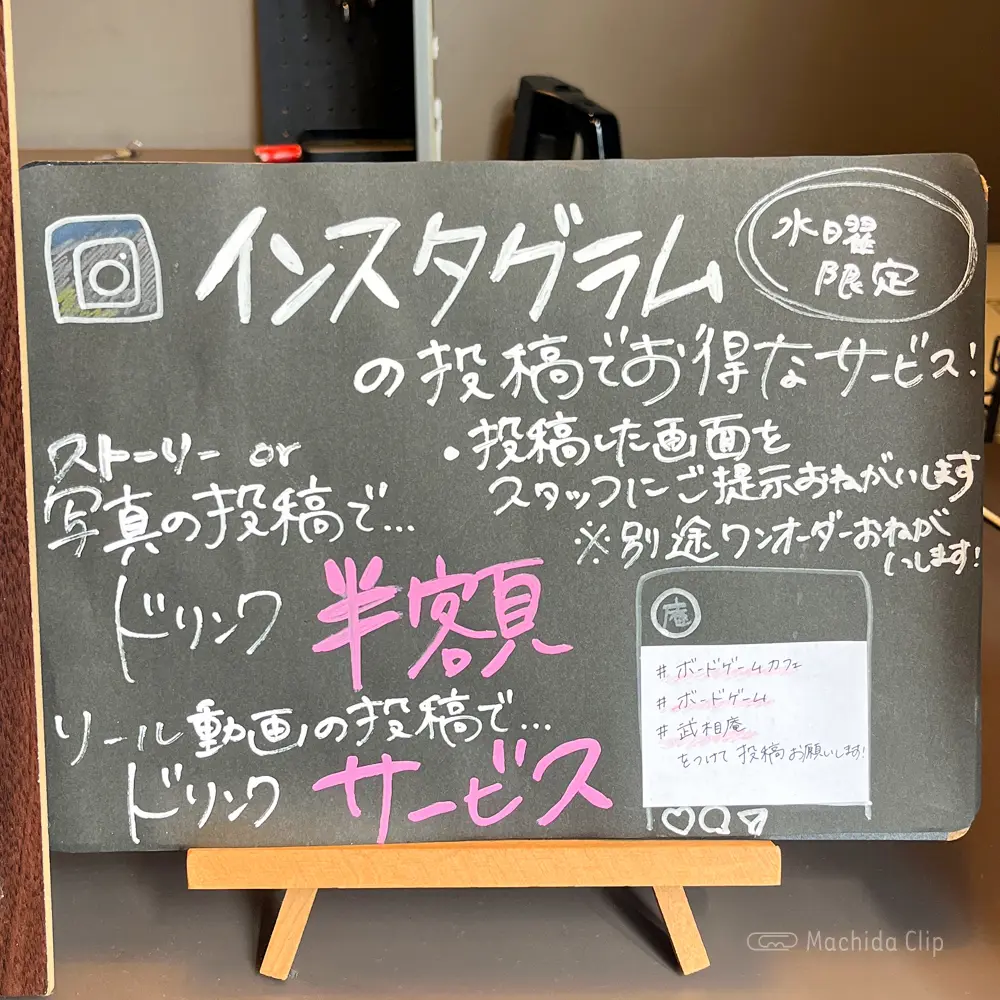 インスタグラム
水曜
限定
の投稿でお得なサービス!
・投稿した画面を
スタッフにご提示おねがいします
※別途ワンオーダーおねが
いします!
ストーリー or
写真の投稿で…
ドリンク 半額
リール動画の投稿で…
ドリンク サービス
庵
#ボードゲームカフェ
#ボードゲーム
#武相庵
をつけて投稿お願いします!
Machida Clip